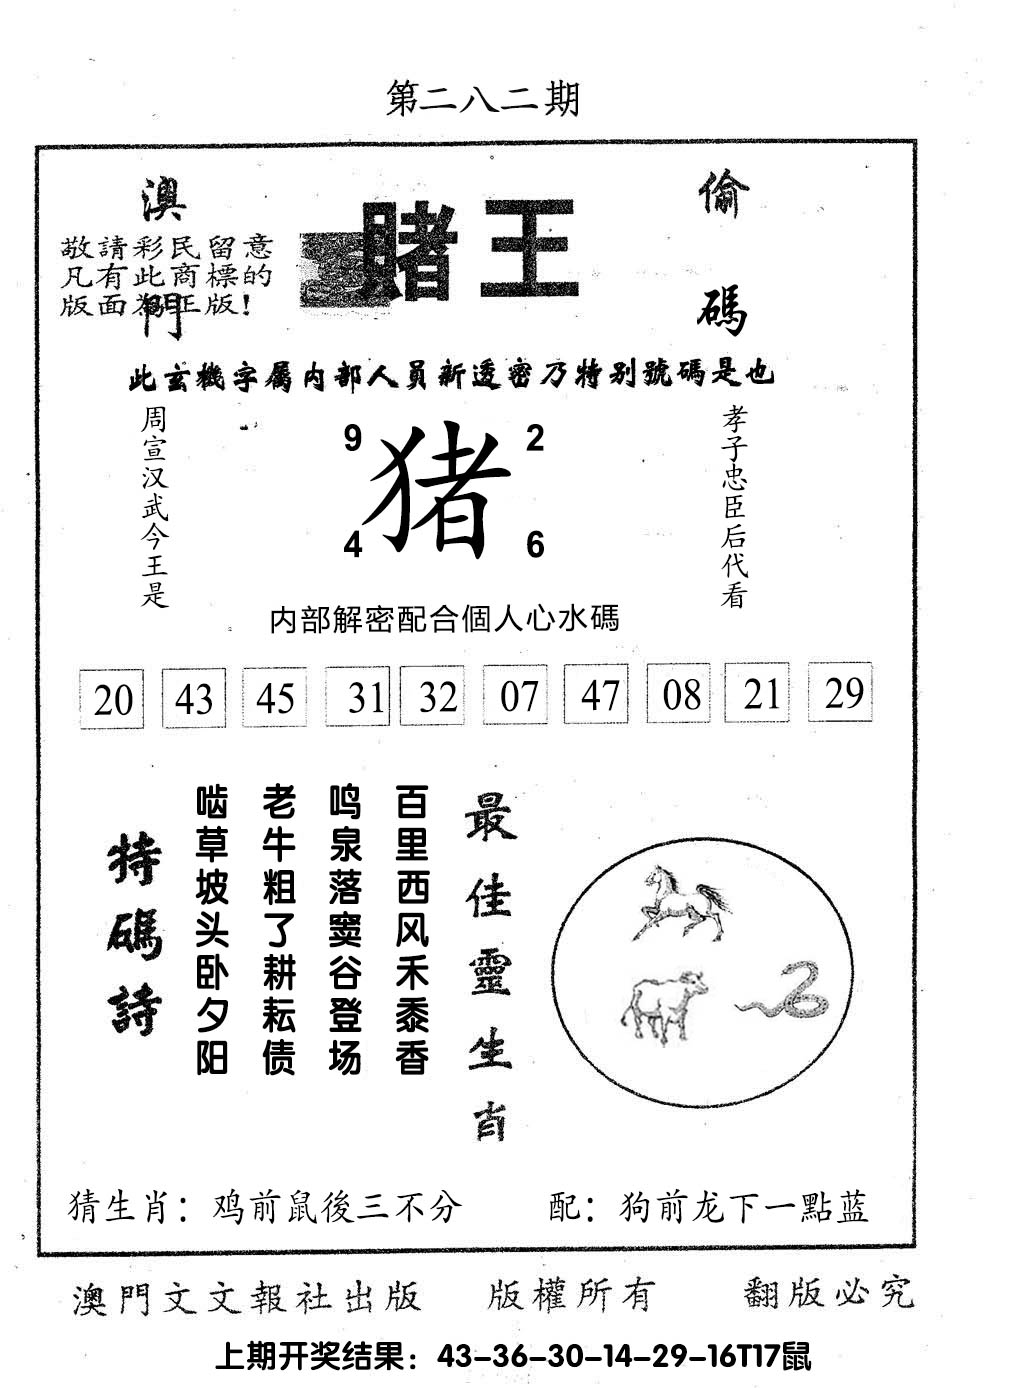 第二八二期
澳門
賭王
偷碼
敬請彩民留意
凡有此商標的
版面為正版!
此玄機字屬内部人員新透密乃特别號碼是也
周宣汉武今王是
9 2
猪
4 6
孝子忠臣后代看
内部解密配合個人心水碼
20 43 45 31 32 07 47 08 21 29
特碼詩
啮草坡头卧夕阳
老牛粗了耕耘债
鸣泉落窦谷登场
百里西风禾黍香
最佳靈生肖
猜生肖：鸡前鼠後三不分 配：狗前龙下一點蓝
澳門文文報社出版 版權所有 翻版必究
上期开奖结果：43-36-30-14-29-16T17鼠